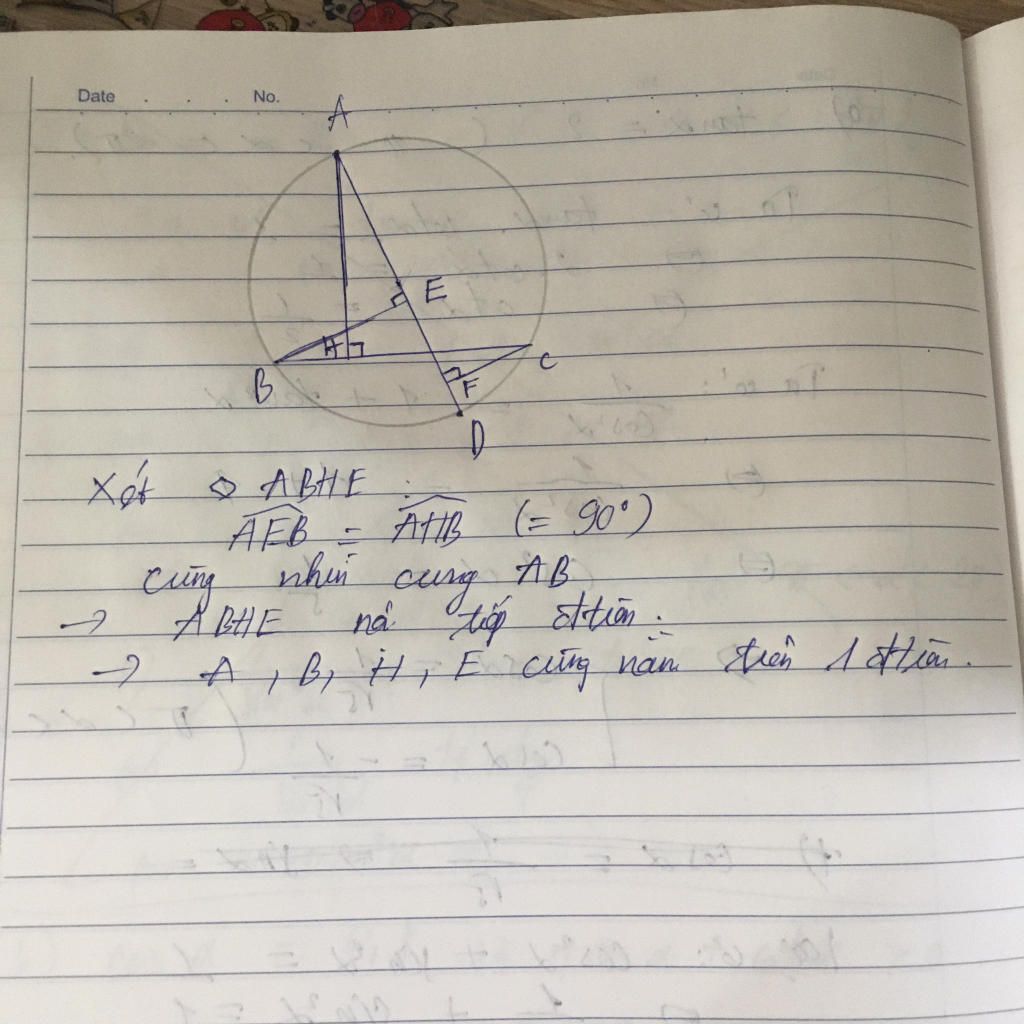 Date . . . No.
A
E
H
B
C
F
D
Xét ◇ ABHE :
AEB = AHB (= 90°)
cùng nhìn cung AB
→ ABHE nội tiếp đttròn.
→ A, B, H, E cùng nằm trên 1 đttròn.